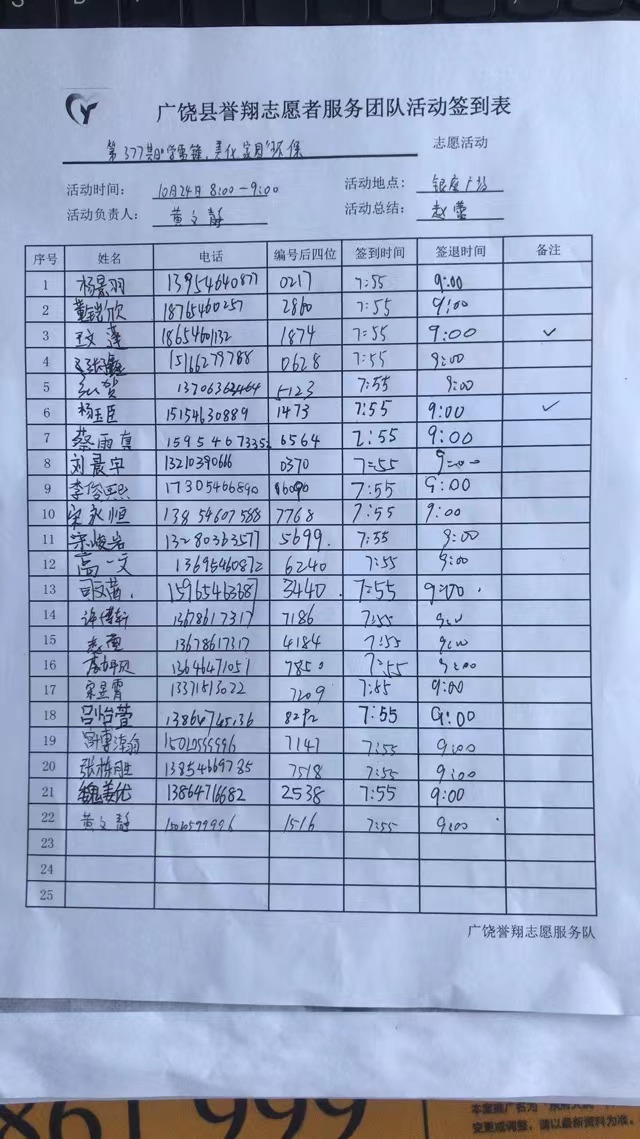 广饶县誉翔志愿者服务团队活动签到表
第377期"学雷锋,美化家园"环保 志愿活动
活动时间: 10月24日 8:00-9:00 活动地点: 银座广场
活动负责人: 黄文静 活动总结: 赵蕾
序号 姓名 电话 编号后四位 签到时间 签退时间 备注
1 杨景羽 13954640877 0217 7:55 9:00
2 董铠欣 18765460257 2860 7:55 9:00
3 王文莲 18654601132 1874 7:55 9:00 ✓
4 15166279788 0628 7:55 9:00
5 13706362464 5123 7:55 9:00
6 杨玉臣 15154630889 1473 7:55 9:00 ✓
7 蔡雨真 15954673353 6564 7:55 9:00
8 刘晨宇 13210390666 0370 7:55 9:00
9 李俊熙 17305466890 7:55 9:00
10 宋永恒 13854607588 7768 7:55 9:00
11 宋峻岩 13280363577 5699. 7:55 9:00
12 高一文 13695460872 6240 7:55 9:00
13 15965463687 3440. 7:55 9:00.
14 许傅轩 13678617317 7186 7:55 9:00
15 13678617317 4184 7:55 9:00
16 13646471051 7850 7:55 9:00
17 宋昱霄 13371513022 7209 7:55 9:00
18 吕怡萱 13864745136 8292 7:55 9:00
19 7141 7:55 9:00
20 张栋胜 13854669785 7518 7:55 9:00
21 魏美优 13864716682 2538 7:55 9:00
22 黄文静 1516 7:55 9:00
23
24
25
广饶誉翔志愿服务队
861 999
变更或调整,请以最新资料为准。